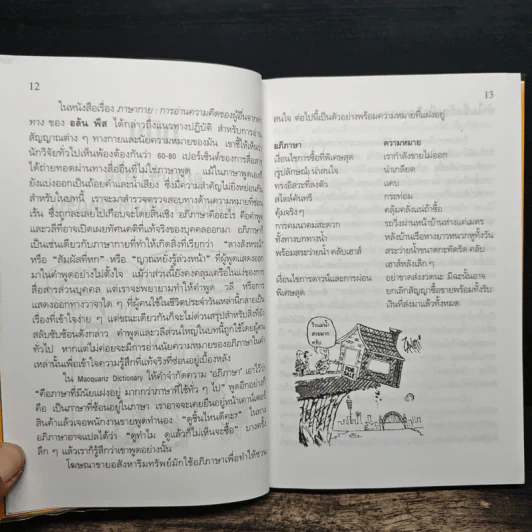 12
ในหนังสือเรื่อง ภาษากาย : การอ่านความคิดของผู้อื่นจากท่า
ทาง ของ อลัน พีส ได้กล่าวถึงแนวทางปฏิบัติ สำหรับการอ่าน
สัญญาณต่าง ๆ ทางกายและนัยความหมายของมัน เขาชี้ให้เห็นว่า
นักวิจัยทั่วไปเห็นพ้องต้องกันว่า 60-80 เปอร์เซ็นต์ของการสื่อสาร
ได้ถ่ายทอดผ่านทางสื่ออื่นที่ไม่ใช่ภาษาพูด แม้ในภาษาพูดเองก็
ยังแบ่งออกเป็นถ้อยคำและน้ำเสียง ซึ่งมีความสำคัญไม่ยิ่งหย่อนกัน
สำหรับในบทนี้ เราจะมาสำรวจตรวจสอบทางด้านความหมายที่ซ่อน
เร้น ซึ่งถูกละเลยไปเกือบจะโดยสิ้นเชิง อภิภาษาคืออะไร คือคำพูด
และวลีที่อาจเปิดเผยทัศนคติที่แท้จริงของบุคคลออกมา อภิภาษาก็
เป็นเช่นเดียวกับภาษากายที่ทำให้เกิดสิ่งที่เรียกว่า "ลางสังหรณ์"
หรือ "สัมผัสที่หก" หรือ "ญาณหยั่งรู้ล่วงหน้า" ที่ผู้พูดแสดงออก
มาในคำพูดอย่างไม่ตั้งใจ แม้ว่าส่วนนี้ยังคงคลุมเครือในแง่ของการ
สื่อสารส่วนบุคคล แต่เราก็จะพยายามทำให้คำพูด วลี หรือการ
แสดงออกทางวาจาใด ๆ ที่ผู้คนใช้ในชีวิตประจำวันเหล่านี้กลายเป็น
เรื่องที่เข้าใจง่าย ๆ แต่ขณะเดียวกันก็จะไม่ด่วนสรุปสำหรับสิ่งที่ยัง
สลับซับซ้อนดังกล่าว คำพูดและวลีส่วนใหญ่ในบทนี้ถูกใช้โดยผู้คน
ทั่วไป หากแต่ไม่ค่อยจะมีการอ่านนัยความหมายของอภิภาษาใน
เหล่านั้นเพื่อเข้าใจความรู้สึกที่แท้จริงที่ซ่อนอยู่เบื้องหลัง
ใน Macquarie Dictionary ให้คำจำกัดความ "อภิภาษา" เอาไว้ว่า
"คือภาษาที่มีนัยแฝงอยู่ มากกว่าภาษาที่ใช้ทั่ว ๆ ไป" พูดอีกอย่างก็
คือ เป็นภาษาที่ซ้อนอยู่ในภาษา เราอาจจะเคยยืนอยู่หน้าเคาน์เตอร์
สินค้าแล้วเจอพนักงานขายพูดทำนอง "ดูชิ้นไหนดีคะ?" ในทาง
อภิภาษาอาจแปลได้ว่า "ดูทำไม ดูแล้วก็ไม่เห็นจะซื้อ" บางครั้ง
ลึก ๆ แล้วเราก็รู้สึกว่าเขาพูดอย่างนั้น
โฆษณาขายอสังหาริมทรัพย์มักใช้อภิภาษาเพื่อทำให้ชวน
13
สนใจ ต่อไปนี้เป็นตัวอย่างพร้อมความหมายที่แฝงอยู่
อภิภาษา ความหมาย
เงื่อนไขการซื้อที่พิเศษสุด เรากำลังขายไม่ออก
รูปลักษณ์ น่าสนใจ น่าเกลียด
ทรงอิสระที่ลงตัว แคบ
สไตล์คันทรี กระท่อม
คุ้มจริง ๆ คุ้มคลั่งแน่ถ้าซื้อ
การคมนาคมสะดวก รถวิ่งผ่านหน้าบ้านห่างแค่เมตร
ทั้งทางบกทางน้ำ หลังบ้านเรือหางยาวหนวกหูทั้งวัน
พร้อมสระว่ายน้ำ คลับเฮาส์ สระว่ายน้ำขนาดกะทัดรัด คลับ
เฮาส์หลังเล็ก ๆ
เงื่อนไขการดาวน์และการผ่อน อย่าขาดส่งงวดนะ มิฉะนั้นอาจ
พิเศษสุด ยกเลิกสัญญาซื้อขายพร้อมทั้งริบ
เงินที่ส่งมาแล้วทั้งหมด
วิวแม่น้ำ
สวยมาก
ครับ